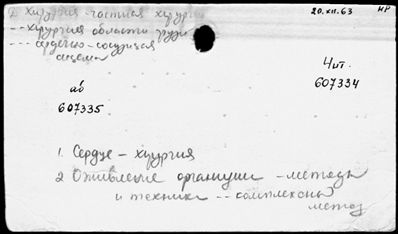 2. Хирургия частная хирург
20.XII.63
НР
-- хирургия области груди
--- сердечно-сосудистая
система
Чит.
607334
аб
607335
1. Сердце – хирургия
2 Оживление организма – методы
и техника -- комплексный
метод